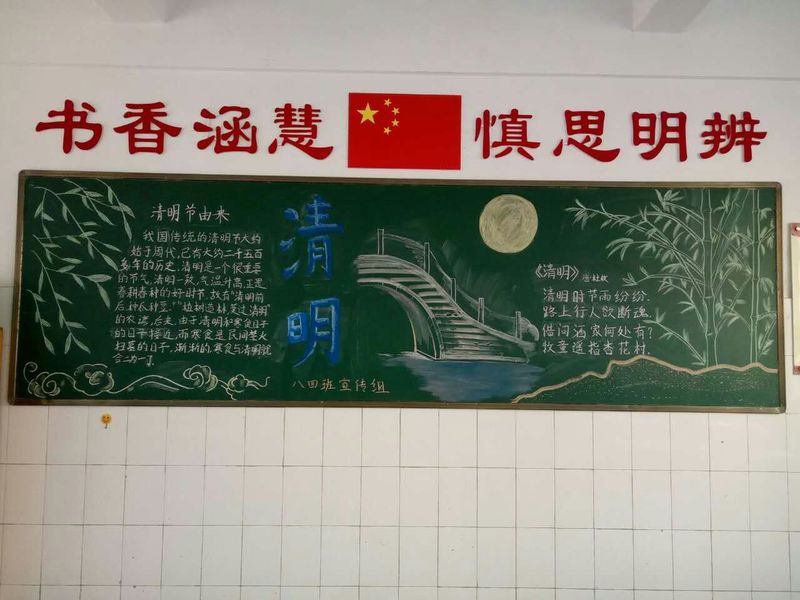 书香涵慧 慎思明辨
清明节由来
我国传统的清明节大约
始于周代,已有大约二千五百
多年的历史,清明是一个很重要
的节气,清明一到,气温升高,正是
春耕春种的好时节,故有“清明前
后,种瓜种豆。”“植树造林,莫过清明”
的农谚。后来,由于清明和寒食日子
的日子接近,而寒食是民间禁火
扫墓的日子,渐渐的,寒食与清明就
合二为一了。
清明
八四班宣传组
《清明》 唐·杜牧
清明时节雨纷纷,
路上行人欲断魂。
借问酒家何处有?
牧童遥指杏花村.